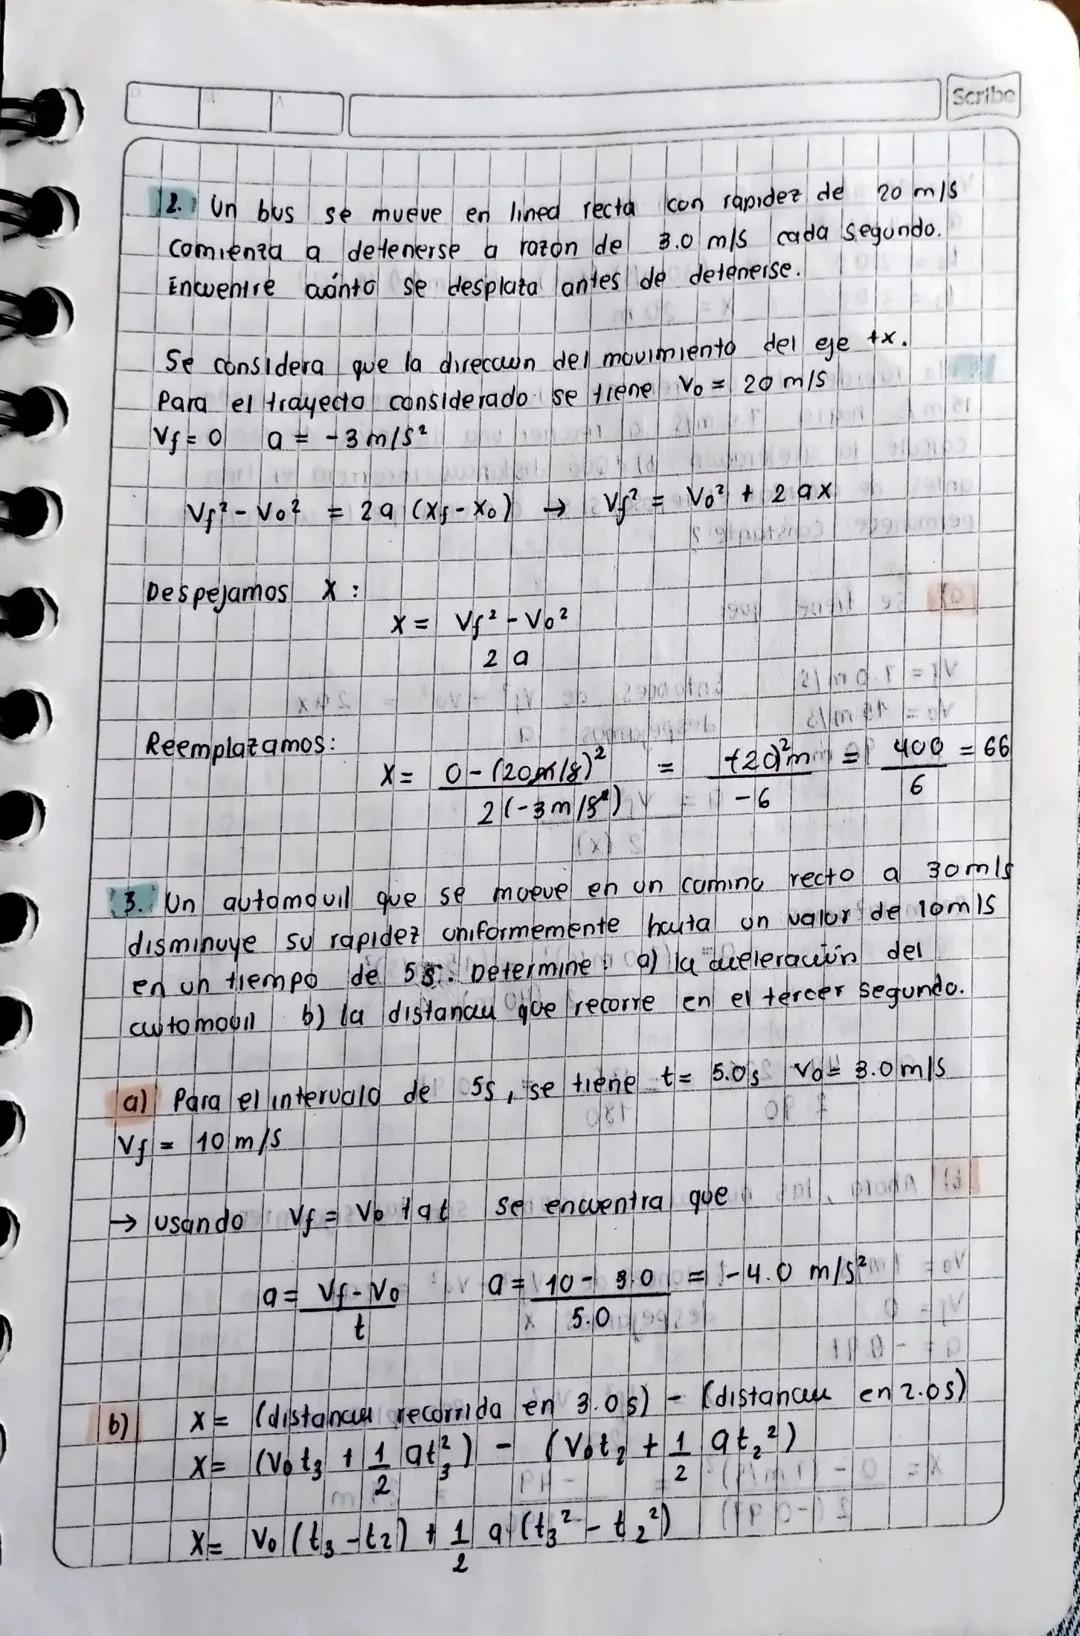 Scribe
2. Un bus se mueve en linea recta con rapidez de 20 m/s
comienza a detenerse a razón de 3.0 m/s cada segundo.
Encuentre cuánto se desplaza antes de detenerse.
Se considera que la dirección del movimiento del eje +x.
Para el trayecto considerado se tiene V₀ = 20 m/s
Vf = 0 a = -3 m/s²
Vf² - V₀² = 2a (Xf - X₀) → Vf² = V₀² + 2ax
Despejamos X :
X = Vf² - V₀² / 2a
Reemplazamos:
X = 0 - (20 m/s)² / 2(-3 m/s²) = +20)² m / -6 = 400 / 6 = 66
3. Un automovil que se mueve en un camino recto a 30 m/s
disminuye su rapidez uniformemente hasta un valor de 10 m/s
en un tiempo de 5s. Determine: a) la aceleración del
automovil b) la distancia que recorre en el tercer segundo.
a) Para el intervalo de 5s, se tiene t = 5.0s V₀ = 3.0 m/s
Vf = 10 m/s
→ usando Vf = V₀ + at se encuentra que
a = Vf - V₀ / t a = 10 - 3.0 / 5.0 = -4.0 m/s²
b) X = (distancia recorrida en 3.0s) - (distancia en 2.0s)
X = (V₀t₃ + 1/2 at₃²) - (V₀t₂ + 1/2 at₂²)
X = V₀ (t₃ - t₂) + 1/2 a (t₃² - t₂²)